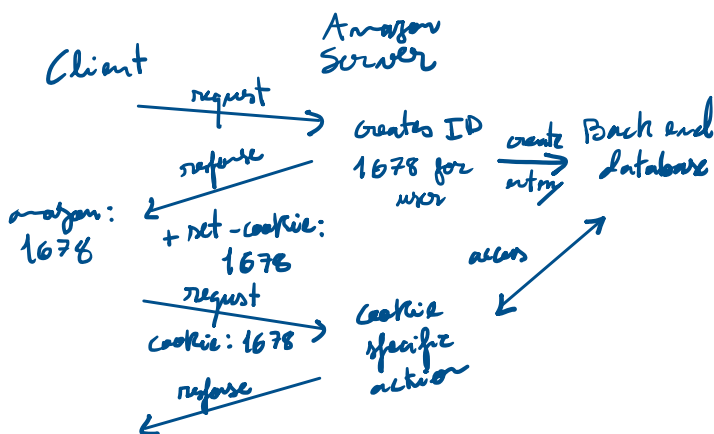 Client
Amazon
Server
request
creates ID
1678 for
user
create
entry
Back end
database
response
+ set-cookie:
1678
amazon:
1678
request
cookie: 1678
cookie
specific
action
access
response